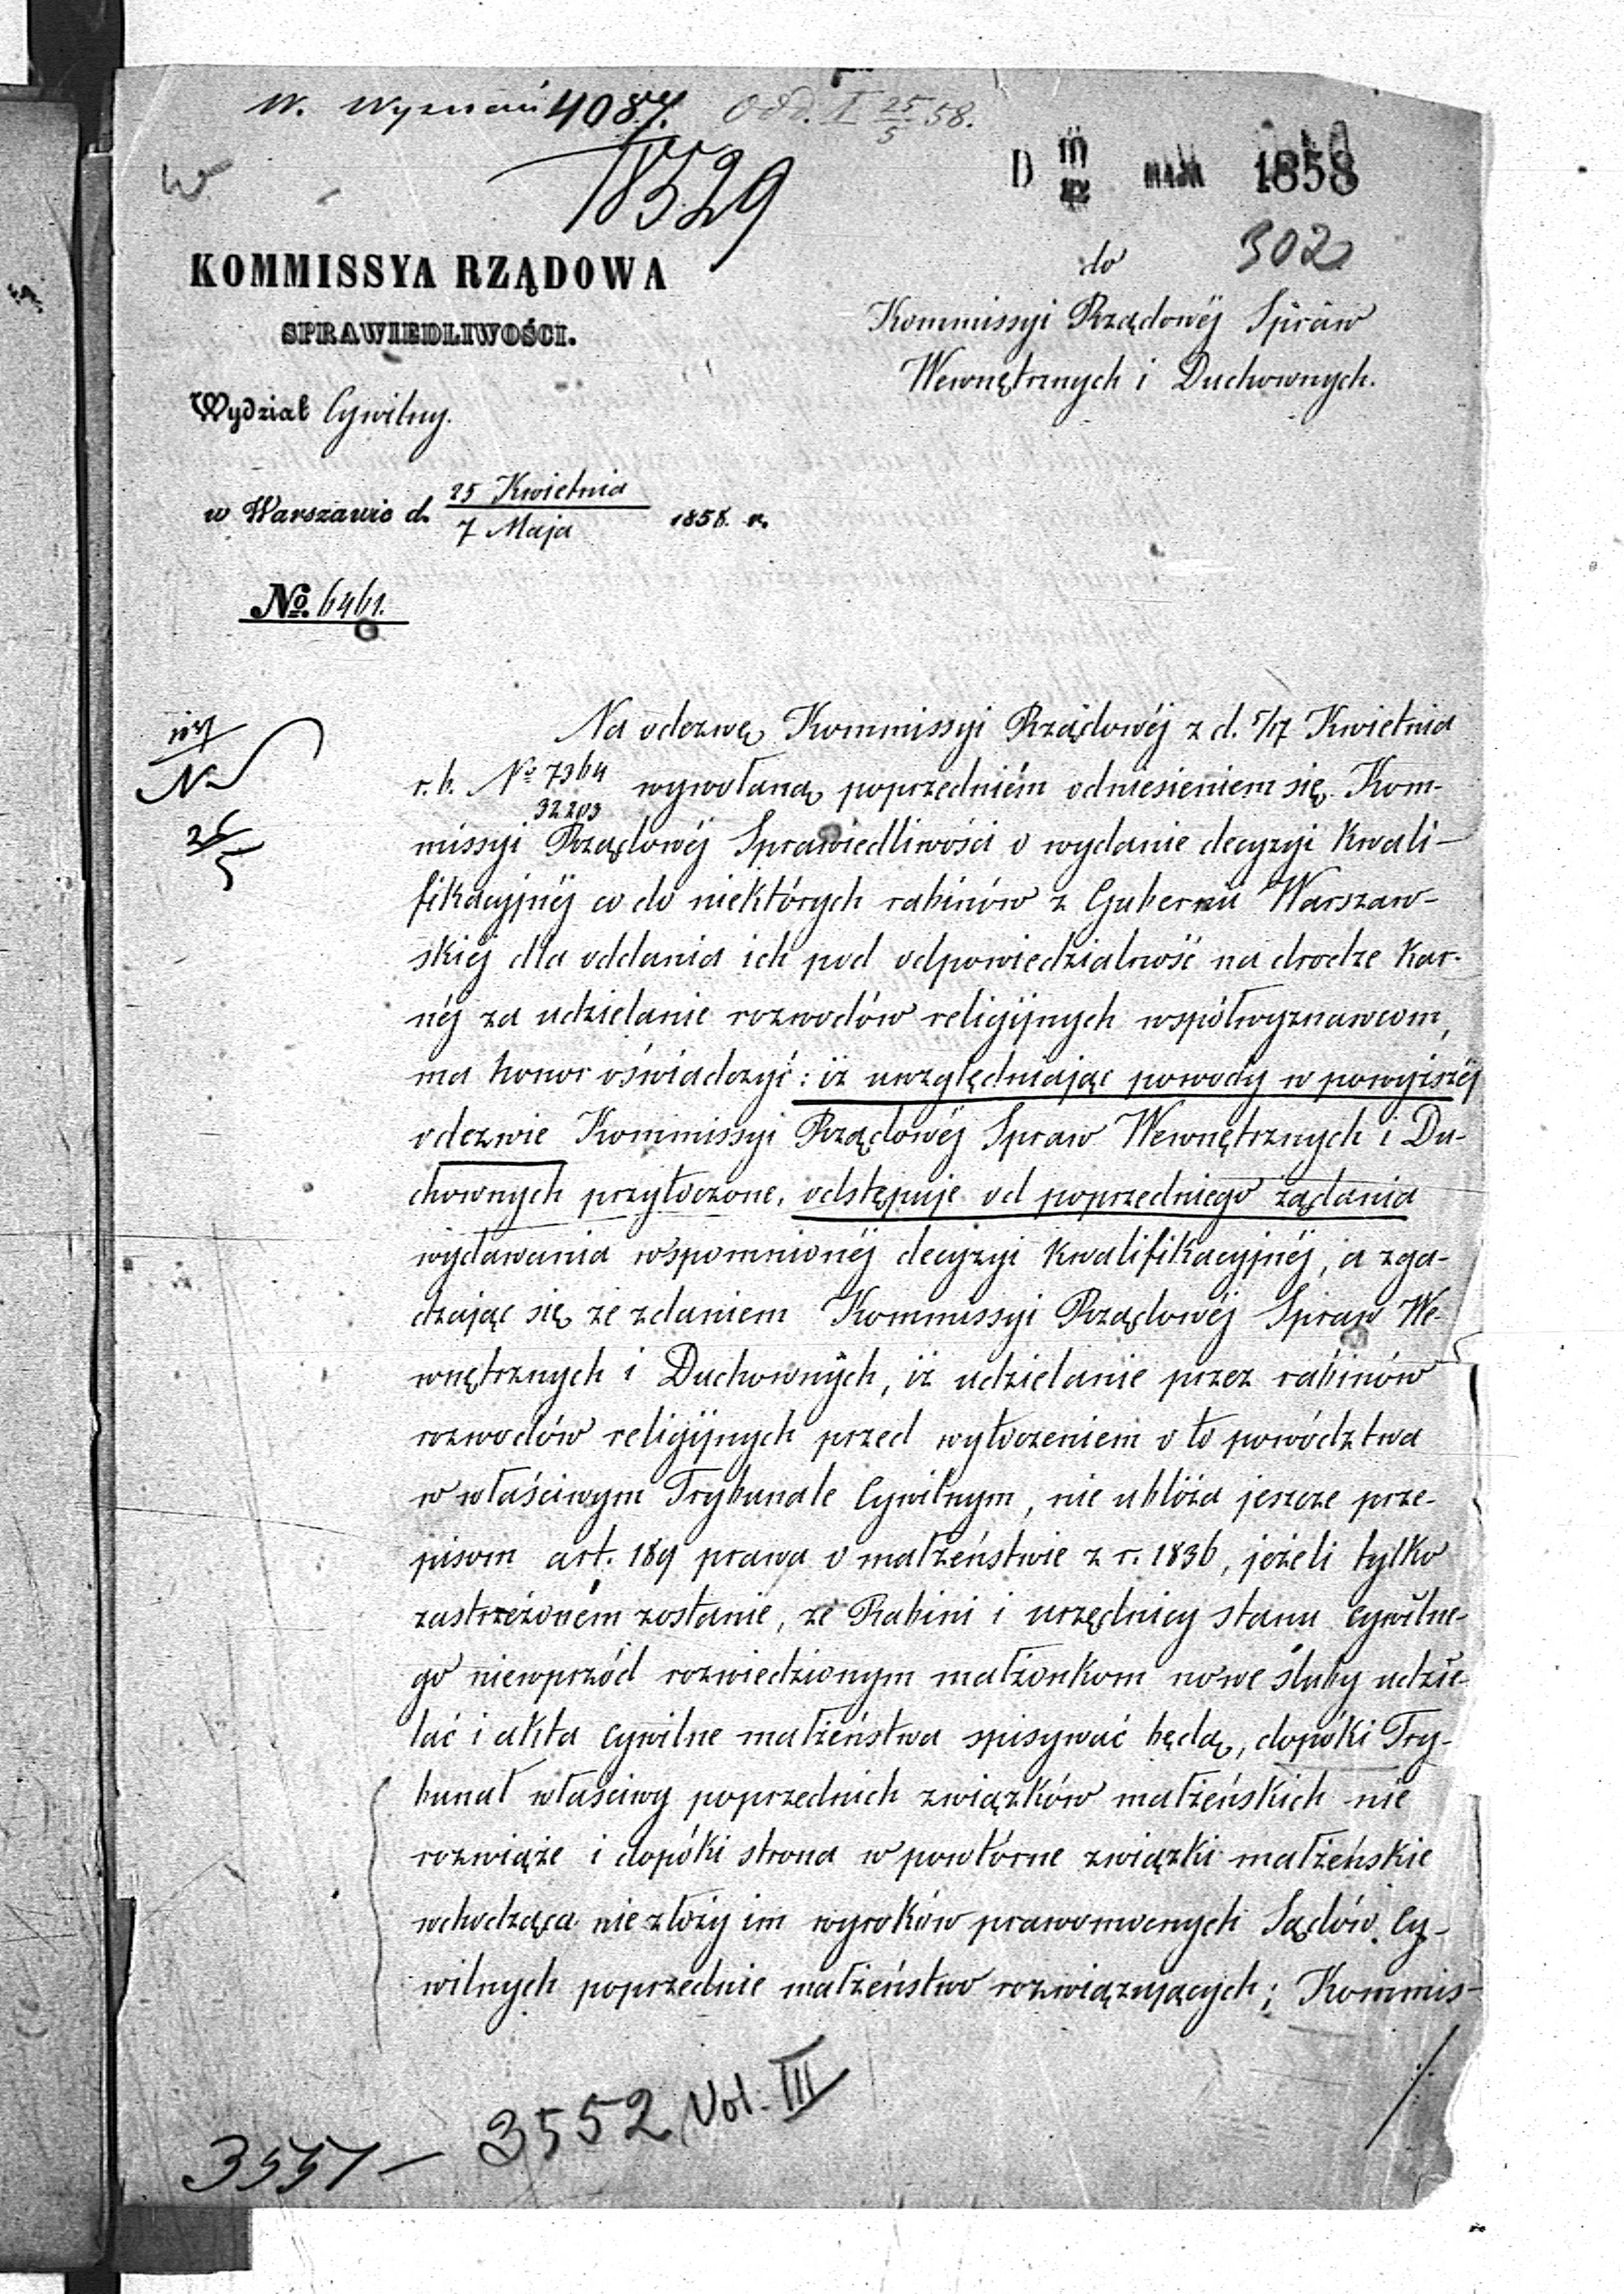 W. Wyznań 4087. Odd. I 25/5 58.
18529
D MAJA 1858
302
KOMMISSYA RZĄDOWA
SPRAWIEDLIWOŚCI.
do
Kommissyi Rządowéj Spraw
Wewnętrznych i Duchownych.
Wydział Cywilny.
w Warszawie d. 25 Kwietnia / 7 Maja 1858. r.
No. 6461.
Na odezwę Kommissyi Rządowéj z d. 5/17 Kwietnia
r. b. No 7364/32203 wywołaną poprzedniém odniesieniem się Kom-
missyi Rządowéj Sprawiedliwości o wydanie decyzyi kwali-
fikacyjnéj co do niektórych rabinów z Gubernii Warszaw-
skiéj dla oddania ich pod odpowiedzialność na drodze kar-
néj za udzielanie rozwodów religijnych współwyznawcom,
ma honor oświadczyć: iż uwzględniając powody w powyższéj
odezwie Kommissyi Rządowéj Spraw Wewnętrznych i Du-
chownych przytoczone, odstępuje od poprzedniego żądania
wydawania wspomnionéj decyzyi kwalifikacyjnéj, a zga-
dzając się ze zdaniem Kommissyi Rządowéj Spraw We-
wnętrznych i Duchownych, iż udzielanie przez rabinów
rozwodów religijnych przed wytoczeniem o to powództwa
w właściwym Trybunale Cywilnym, nie ubliża jeszcze prze-
pisom art. 189 prawa o małżeństwie z r. 1836, jeżeli tylko
zastrzeżoném zostanie, że Rabini i urzędnicy stanu cywilne-
go niewprzód rozwiedzionym małżonkom nowe śluby udzie-
lać i akta cywilne małżeństwa spisywać będą, dopóki Try-
bunał właściwy poprzednich związków małżeńskich nie
rozwiąże i dopóki strona w powtórne związki małżeńskie
wchodząca nie złoży im wyroków prawomocnych Sądów Cy-
wilnych poprzednie małżeństwo rozwiązujących; Kommis-
3551 - 3552 Vol. III